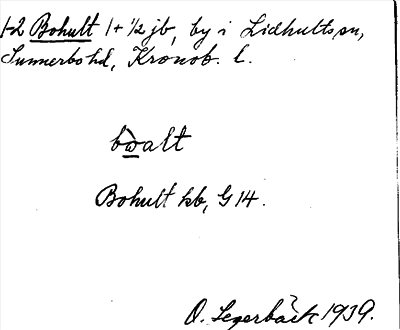 1-2 Bohult 1+½ jb, by i Lidhults sn,
Sunnerbo hd, Kronob. l.
bωalt
Bohult kb, G 14.
O. Segerbäck 1939.